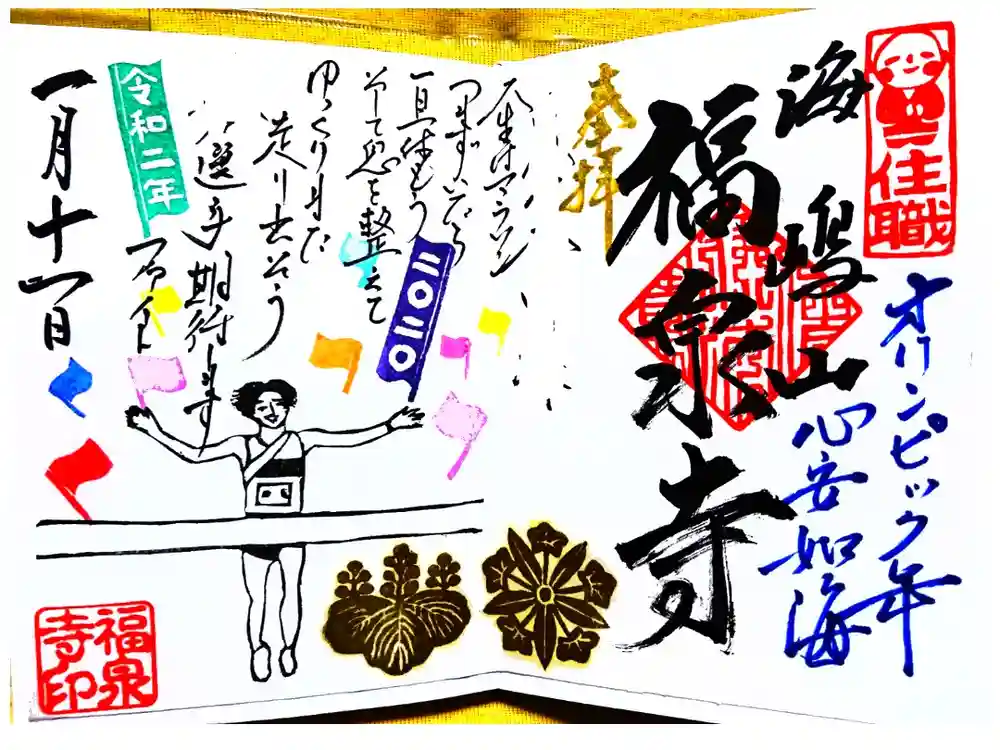 住職
オリンピック年
心安如海
海嶋山
福泉寺
奉拝
人生はマラソン
つまずいたら
一旦休もう
そして息を整えて
ゆっくりまた
走り出そう
選手期待ます
令和二年
二〇二〇
一月十一日
福泉寺印